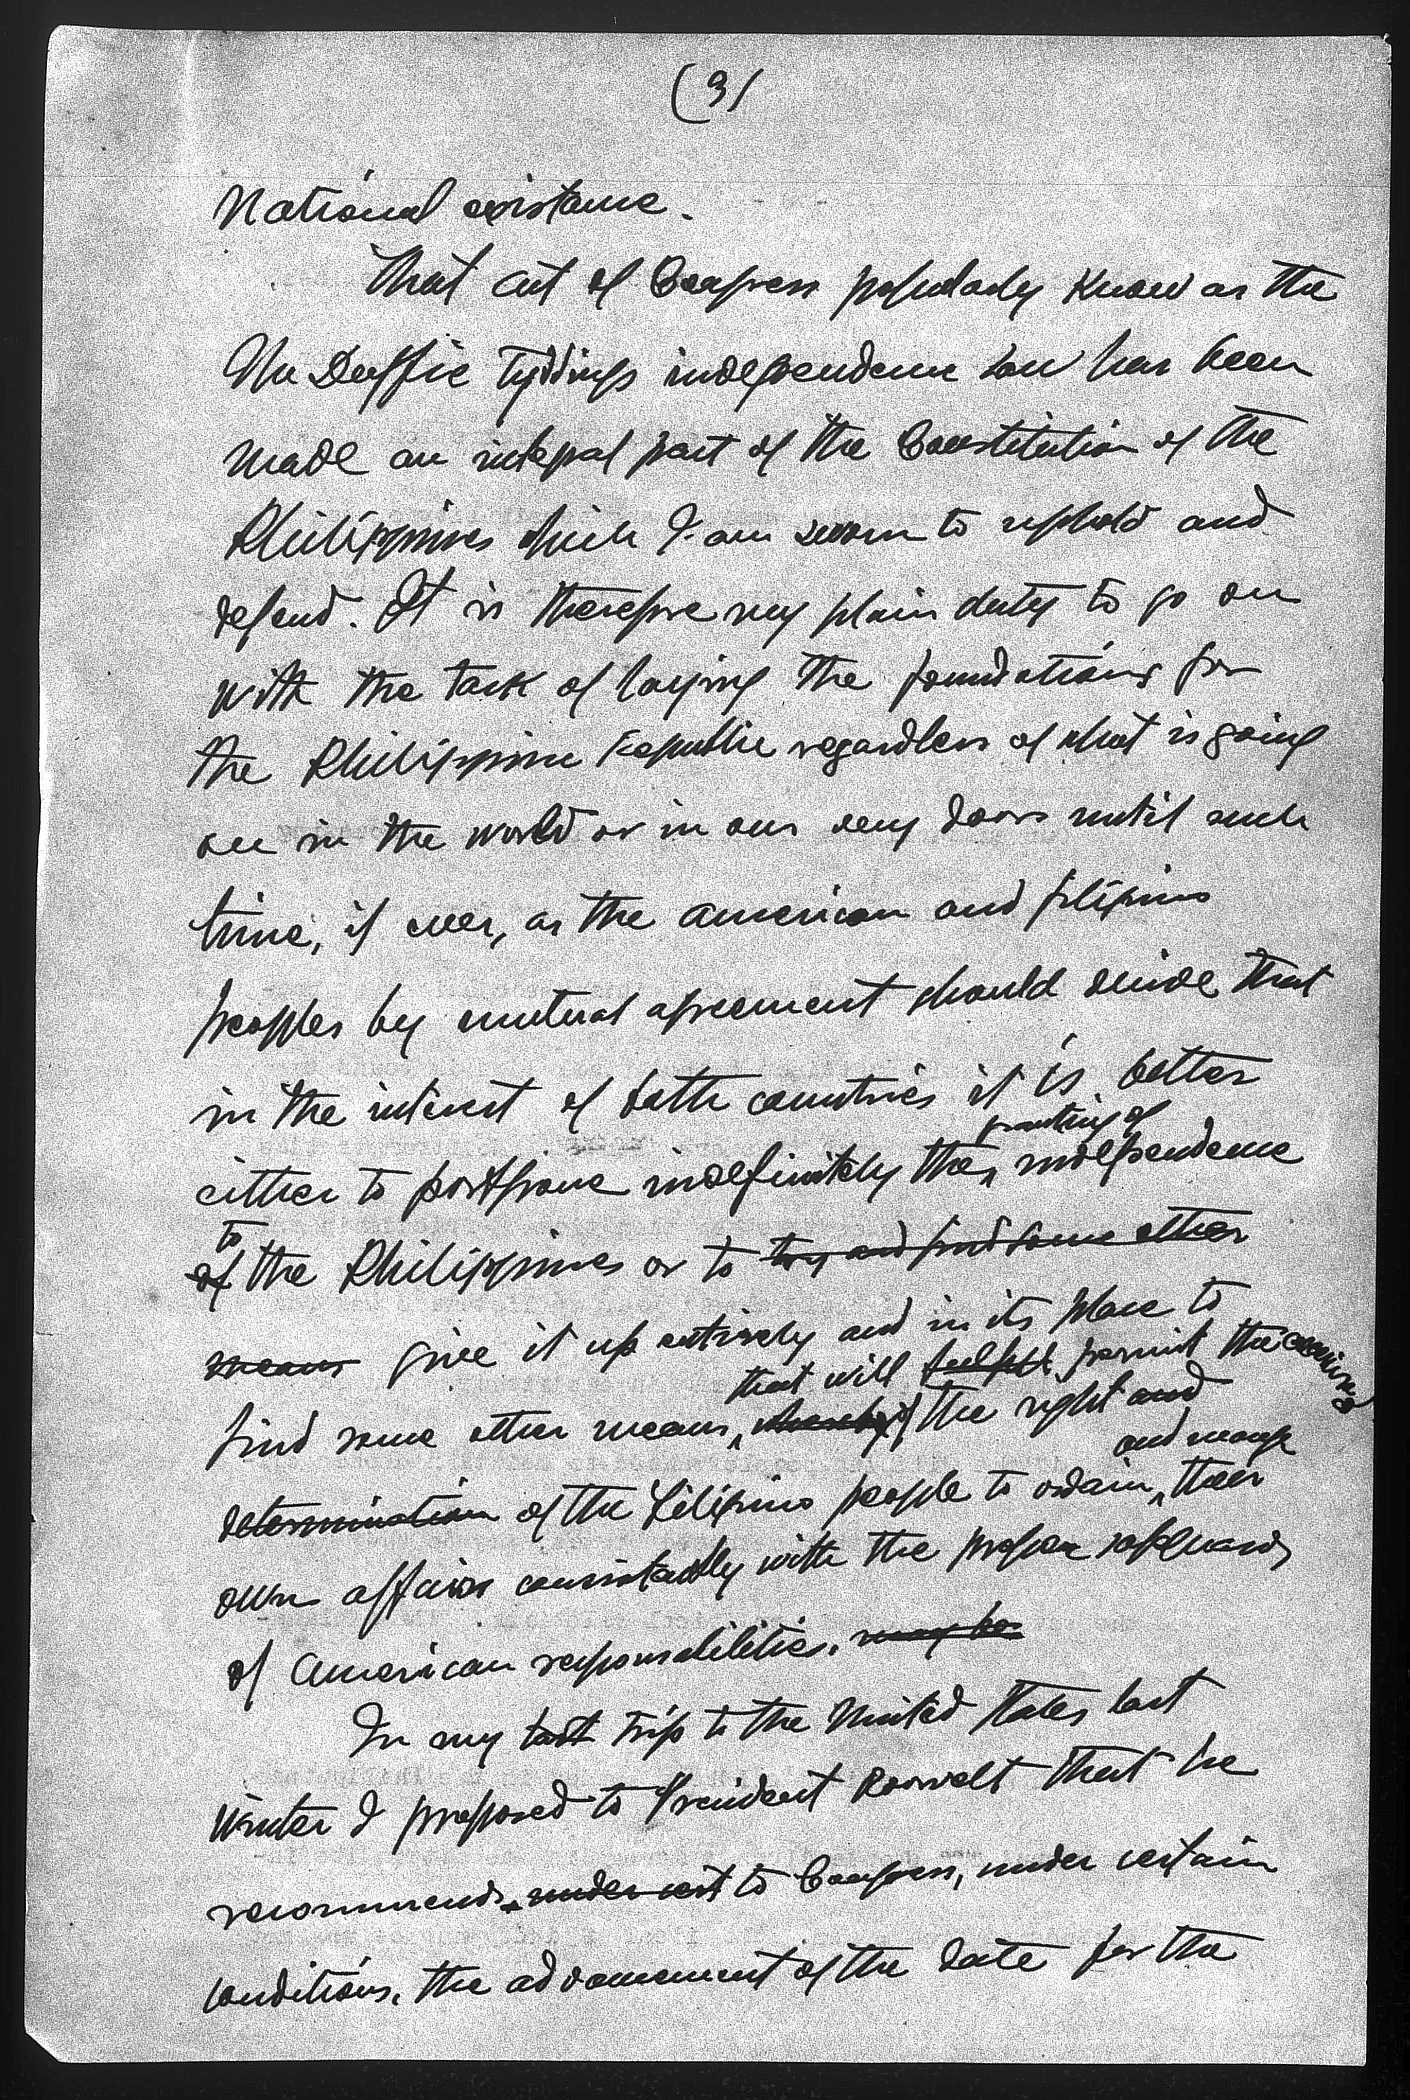 (3)
National existance.
That act of Congress popularly know as the
McDuffie Tydings independence law has been
made an integral part of the Constitution of the
Philippines which I am sworn to uphold and
defend. It is therefore my plain duty to go on
with the task of laying the foundations for
the Philippine Republic regardless of what is going
on in the world or in our very doors until such
time, if ever, as the American and Filipino
peoples by mutual agreement should decide that
in the interest of both countries it is better
granting of
either to postpone indefinitely the independence
to
of the Philippines or to try and find some other
means give it up entirely and in its place to
that will fulfill permit the exercise
find some other means, whereby of the right and
and manage
determination of the Filipino people to ordain, their
own affairs consistantly with the proper safeguards
of American responsabilities. may be
In my last trip to the United States last
Winter I proposed to President Roosvelt that he
recommends under cert to Congress, under certain
conditions, the advancement of the date for the